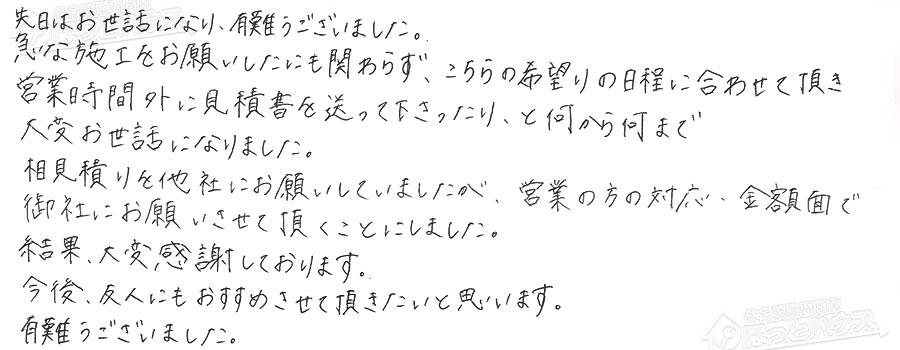 先日はお世話になり、有難うございました。
急な施工をお願いしたにも関わらず、こちらの希望りの日程に合わせて頂き
営業時間外に見積書を送って下さったり、と何から何まで
大変お世話になりました。
相見積りを他社にお願いしていましたが、営業の方の対応・金額面で
御社にお願いさせて頂くことにしました。
結果、大変感謝しております。
今後、友人にもおすすめさせて頂きたいと思います。
有難うございました。
ほっとハウス